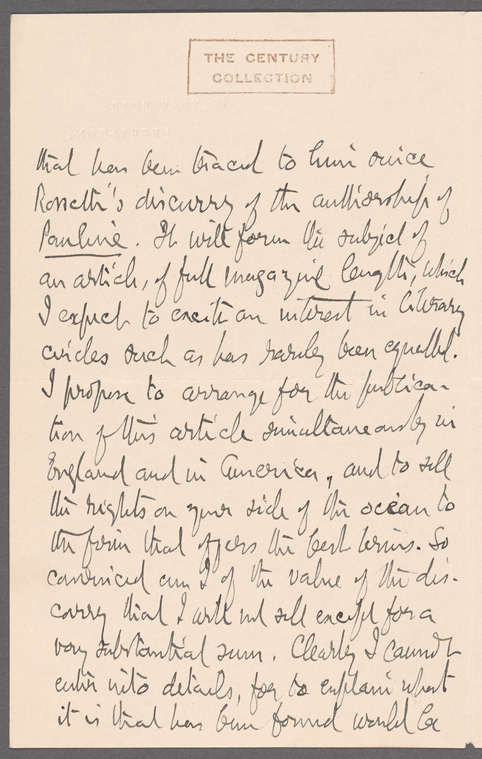 THE CENTURY
COLLECTION
that has been traced to him since
Rossetti's discovery of the authorship of
Pauline. It will form the subject of
an article, of full magazine length, which
I expect to excite an interest in literary
circles such as has rarely been equalled.
I propose to arrange for the publica-
tion of this article simultaneously in
England and in America, and to sell
the rights on your side of the ocean to
the firm that offers the best terms. So
convinced am I of the value of the dis-
covery that I will not sell except for a
very substantial sum. Clearly I cannot
enter into details, for to explain what
it is that has been found would be